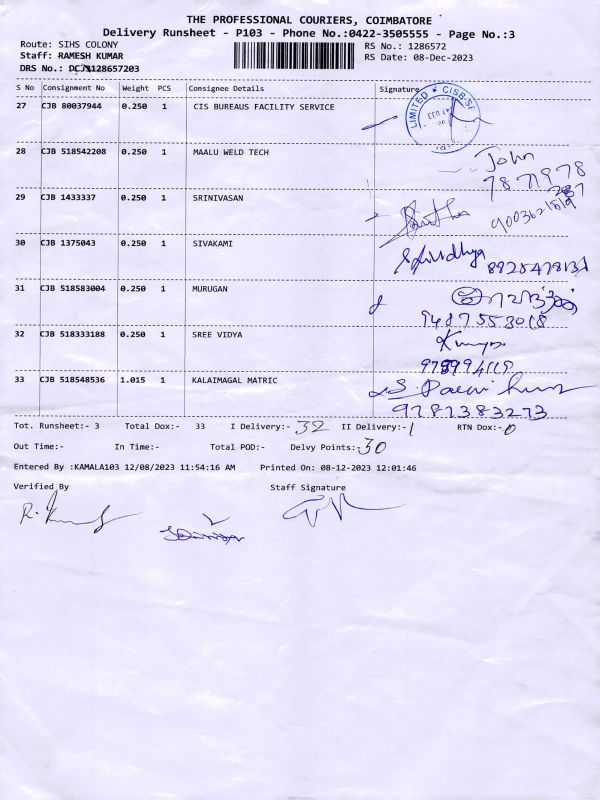 THE PROFESSIONAL COURIERS, COIMBATORE
Delivery Runsheet - P103 - Phone No.:0422-3505555 - Page No.:3
Route: SIHS COLONY
RS No.: 1286572
Staff: RAMESH KUMAR
RS Date: 08-Dec-2023
DRS No.: DCJ%128657203
S No Consignment No Weight PCS Consignee Details Signature
27 CJB 80037944 0.250 1 CIS BUREAUS FACILITY SERVICE
LIMITED * CISB-SF
28 CJB 518542208 0.250 1 MAALU WELD TECH
John
7871978
237
29 CJB 1433337 0.250 1 SRINIVASAN
9003621519
30 CJB 1375043 0.250 1 SIVAKAMI
8925479131
31 CJB 518583004 0.250 1 MURUGAN
9487553018
32 CJB 518333188 0.250 1 SREE VIDYA
33 CJB 518548536 1.015 1 KALAIMAGAL MATRIC
9787383273
Tot. Runsheet:- 3 Total Dox:- 33 I Delivery:- 32 II Delivery:- 1 RTN Dox:- 0
Out Time:- In Time:- Total POD:- Delvy Points:- 30
Entered By :KAMALA103 12/08/2023 11:54:16 AM Printed On: 08-12-2023 12:01:46
Verified By Staff Signature